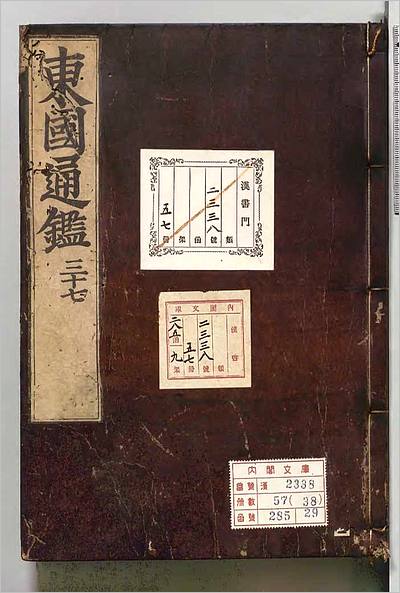 東國通鑑 三十七
漢書門
類
二三三八號
函
架
五七冊
內閣文庫
漢書類
二三三八號
五七冊
二八五函 九架
內閣文庫
番號 漢 2338
冊數 57(38)
函號 285 29